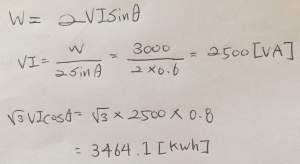 W = 2VISinθ
VI = W / 2Sinθ = 3000 / 2×0.6 = 2500 [VA]
√3 VICosθ = √3 × 2500 × 0.8
= 3464.1 [kwh]